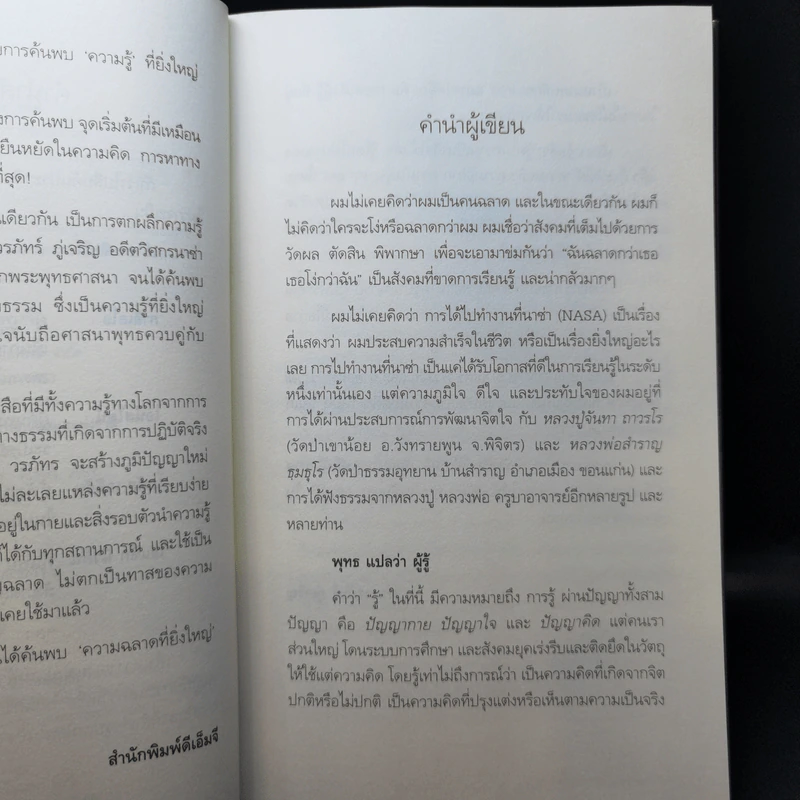 งการค้นพบ 'ความรู้' ที่ยิ่งใหญ่
งการค้นพบ จุดเริ่มต้นที่มีเหมือน
ยืนหยัดในความคิด การหาทาง
ที่สุด!
นเดียวกัน เป็นการตกผลึกความรู้
วรภัทร์ ภู่เจริญ อดีตวิศกรนาซ่า
กพระพุทธศาสนา จนได้ค้นพบ
ธรรม ซึ่งเป็นความรู้ที่ยิ่งใหญ่
จนับถือศาสนาพุทธควบคู่กับ
สือที่มีทั้งความรู้ทางโลกจากการ
างธรรมที่เกิดจากการปฏิบัติจริง
วรภัทร จะสร้างภูมิปัญญาใหม่
ไม่ละเลยแหล่งความรู้ที่เรียบง่าย
อยู่ในกายและสิ่งรอบตัวนำความรู้
ได้กับทุกสถานการณ์ และใช้เป็น
ฉลาด ไม่ตกเป็นทาสของความ
เคยใช้มาแล้ว
ได้ค้นพบ 'ความฉลาดที่ยิ่งใหญ่'
สำนักพิมพ์ดีเอ็มจี
คำนำผู้เขียน
ผมไม่เคยคิดว่าผมเป็นคนฉลาด และในขณะเดียวกัน ผมก็
ไม่คิดว่าใครจะโง่หรือฉลาดกว่าผม ผมเชื่อว่าสังคมที่เต็มไปด้วยการ
วัดผล ตัดสิน พิพากษา เพื่อจะเอามาข่มกันว่า "ฉันฉลาดกว่าเธอ
เธอโง่กว่าฉัน" เป็นสังคมที่ขาดการเรียนรู้ และน่ากลัวมากๆ
ผมไม่เคยคิดว่า การได้ไปทำงานที่นาซ่า (NASA) เป็นเรื่อง
ที่แสดงว่า ผมประสบความสำเร็จในชีวิต หรือเป็นเรื่องยิ่งใหญ่อะไร
เลย การไปทำงานที่นาซ่า เป็นแค่ได้รับโอกาสที่ดีในการเรียนรู้ในระดับ
หนึ่งเท่านั้นเอง แต่ความภูมิใจ ดีใจ และประทับใจของผมอยู่ที่
การได้ผ่านประสบการณ์การพัฒนาจิตใจ กับ หลวงปู่จันทา ถาวรโร
(วัดป่าเขาน้อย อ.วังทรายพูน จ.พิจิตร) และ หลวงพ่อสำราญ
ธมฺธุโร (วัดป่าธรรมอุทยาน บ้านสำราญ อำเภอเมือง ขอนแก่น) และ
การได้ฟังธรรมจากหลวงปู่ หลวงพ่อ ครูบาอาจารย์อีกหลายรูป และ
หลายท่าน
พุทธ แปลว่า ผู้รู้
คำว่า "รู้" ในที่นี้ มีความหมายถึง การรู้ ผ่านปัญญาทั้งสาม
ปัญญา คือ ปัญญากาย ปัญญาใจ และ ปัญญาคิด แต่คนเรา
ส่วนใหญ่ โดนระบบการศึกษา และสังคมยุคเร่งรีบและติดยึดในวัตถุ
ให้ใช้แต่ความคิด โดยรู้เท่าไม่ถึงการณ์ว่า เป็นความคิดที่เกิดจากจิต
ปกติหรือไม่ปกติ เป็นความคิดที่ปรุงแต่งหรือเห็นตามความเป็นจริง